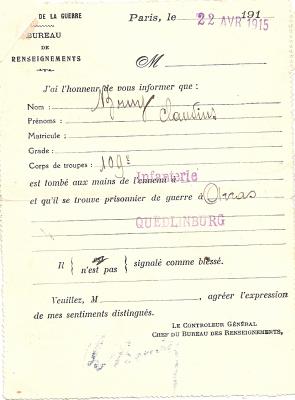 DE LA GUERRE
BUREAU
DE
RENSEIGNEMENTS
Paris, le 22 AVR 1915 191
M
J'ai l'honneur de vous informer que :
Nom :
Prénoms : Claudius
Matricule :
Grade :
Corps de troupes : 109e Infanterie
est tombé aux mains de l'ennemi à Arras
et qu'il se trouve prisonnier de guerre à
QUEDLINBURG
Il { est n'est pas } signalé comme blessé.
Veuillez, M , agréer l'expression
de mes sentiments distingués.
LE CONTROLEUR GÉNÉRAL
CHEF DU BUREAU DES RENSEIGNEMENTS,